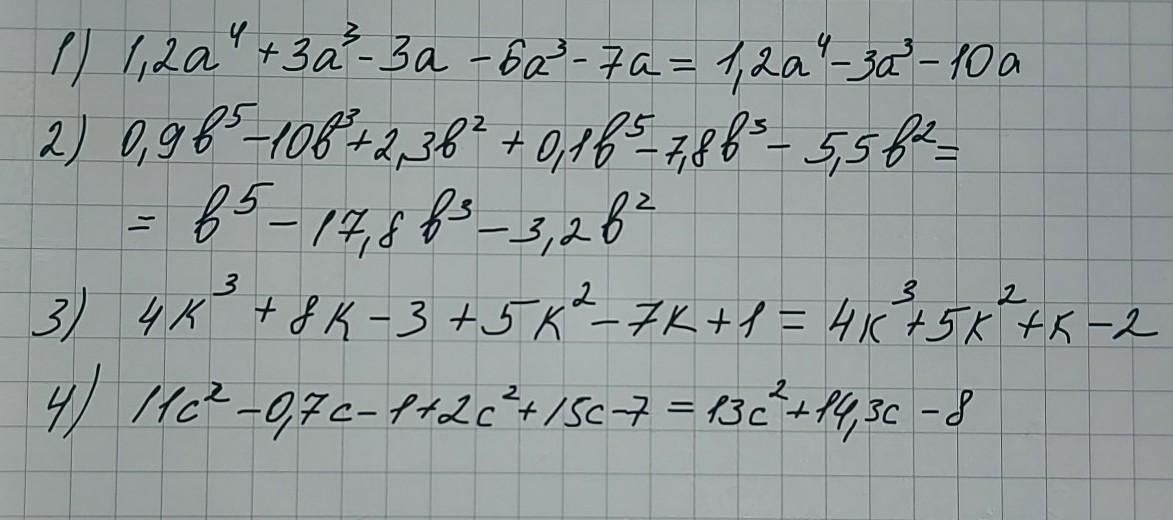 1) 1,2a⁴ + 3a³ - 3a - 6a³ - 7a = 1,2a⁴ - 3a³ - 10a
2) 0,9b⁵ - 10b³ + 2,3b² + 0,1b⁵ - 7,8b³ - 5,5b² =
= b⁵ - 17,8b³ - 3,2b²
3) 4k³ + 8k - 3 + 5k² - 7k + 1 = 4k³ + 5k² + k - 2
4) 11c² - 0,7c - 1 + 2c² + 15c - 7 = 13c² + 14,3c - 8